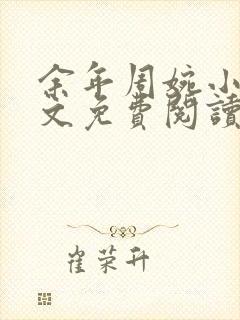 余年周婉小
文免費閱讀
崔荣升